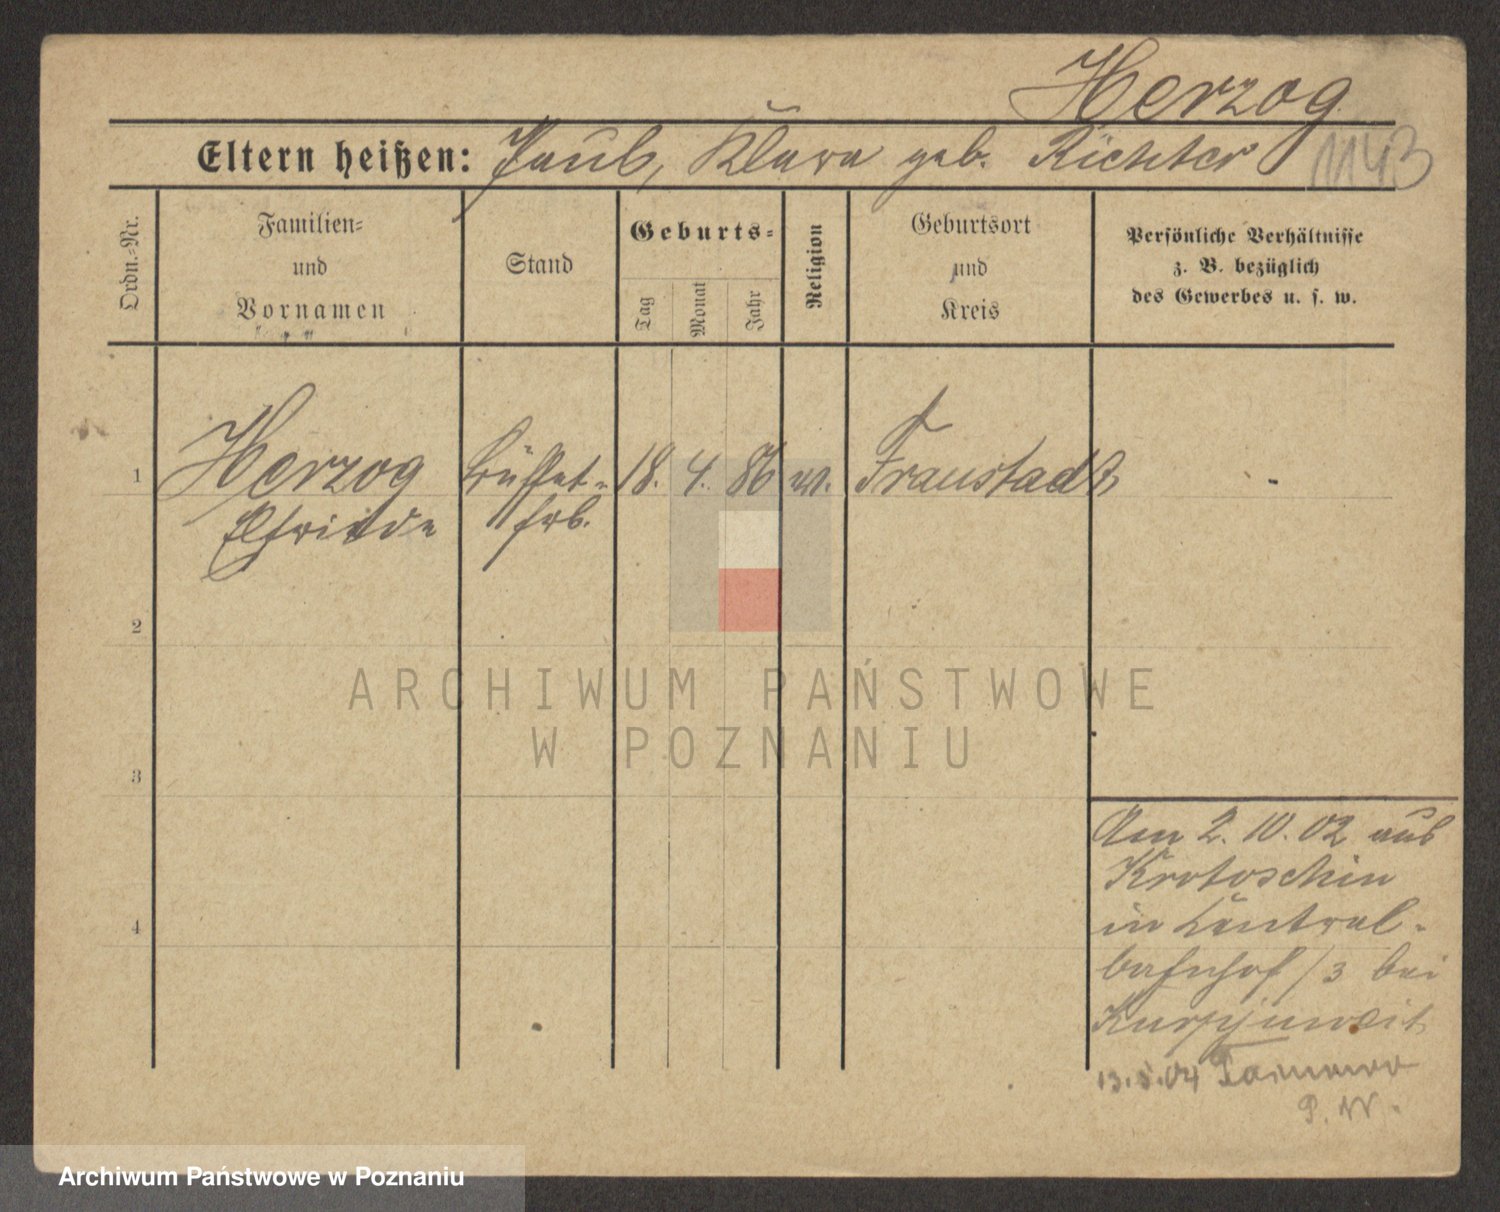 Herzog
Eltern heißen: Paul, Klara geb. Richter
1143
Ordn.=Nr.
Familien=
und
Vornamen
Stand
Geburts=
Tag
Monat
Jahr
Religion
Geburtsort
und
Kreis
Persönliche Verhältnisse
z. B. bezüglich
des Gewerbes u. s. w.
1 Herzog Büffet- 18. 4. 86 Fraustadt -
Elfriede
2
3
4
ARCHIWUM PAŃSTWOWE
W POZNANIU
Am 2.10.02 aus
Krotoschin
in Central-
bahnhof /3 bei
Kurpjuweit
13.5.04
P. W.
Archiwum Państwowe w Poznaniu